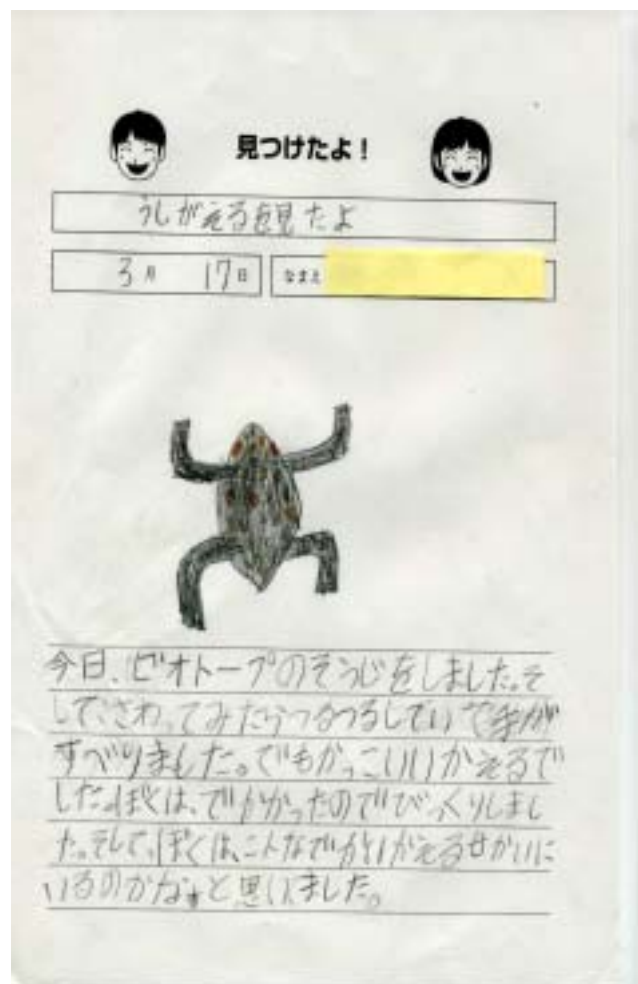 見つけたよ！
うしがえるを見たよ
3月 17日 なまえ
今日、ビオトープのそうじをしました。そ
して、さわってみたらつるつるしていて手が
すべりました。でもかっこいいかえるで
した。ぼくは、でかかったのでびっくりしまし
た。そして、ぼくは、こんなでかいかえるせかいに
いるのかなぁと思いました。